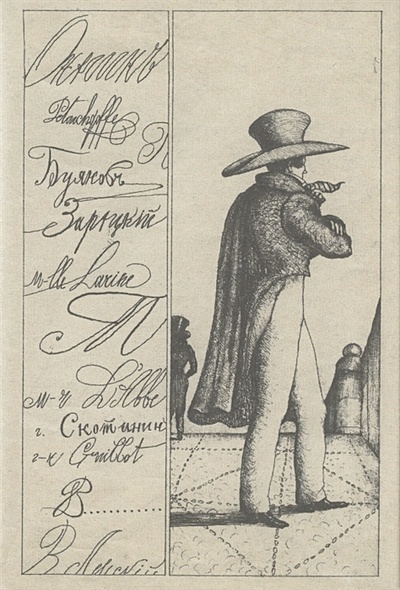 Онѣгинъ
Буяновъ
Зарѣцкій
m-lle Larine
Т
м-r L'Abbe
г. Скотинин
г-н Guillot
В...........
В Ленскій